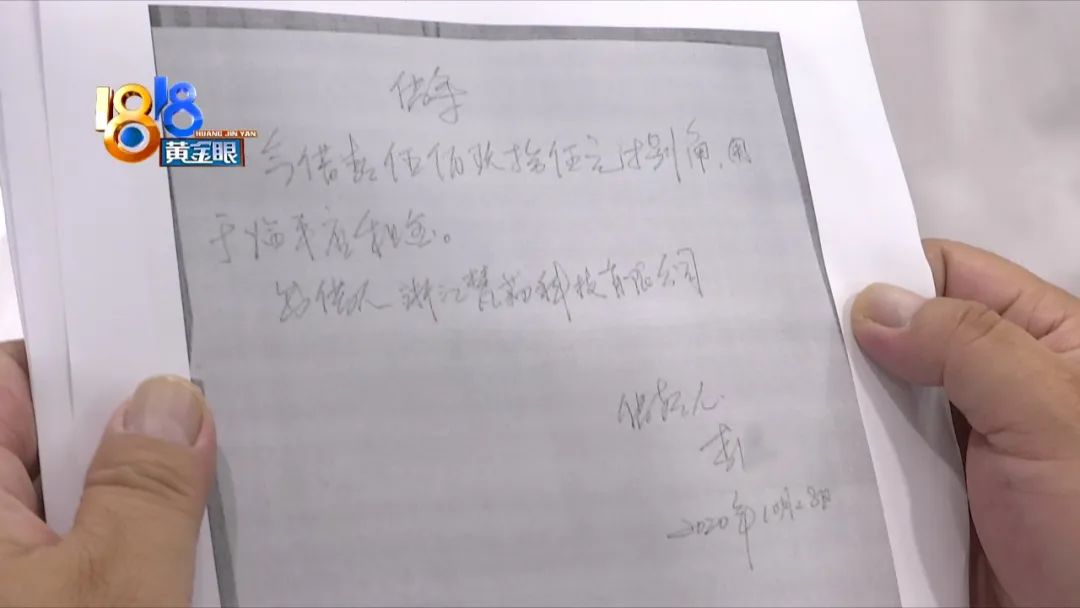 1818
HUANG JIN YAN
黄金眼
借条
今借款伍佰玖拾伍元捌角,用
于临平店租金。
出借人 浙江 科技有限公司
借款人
2020年10月28日